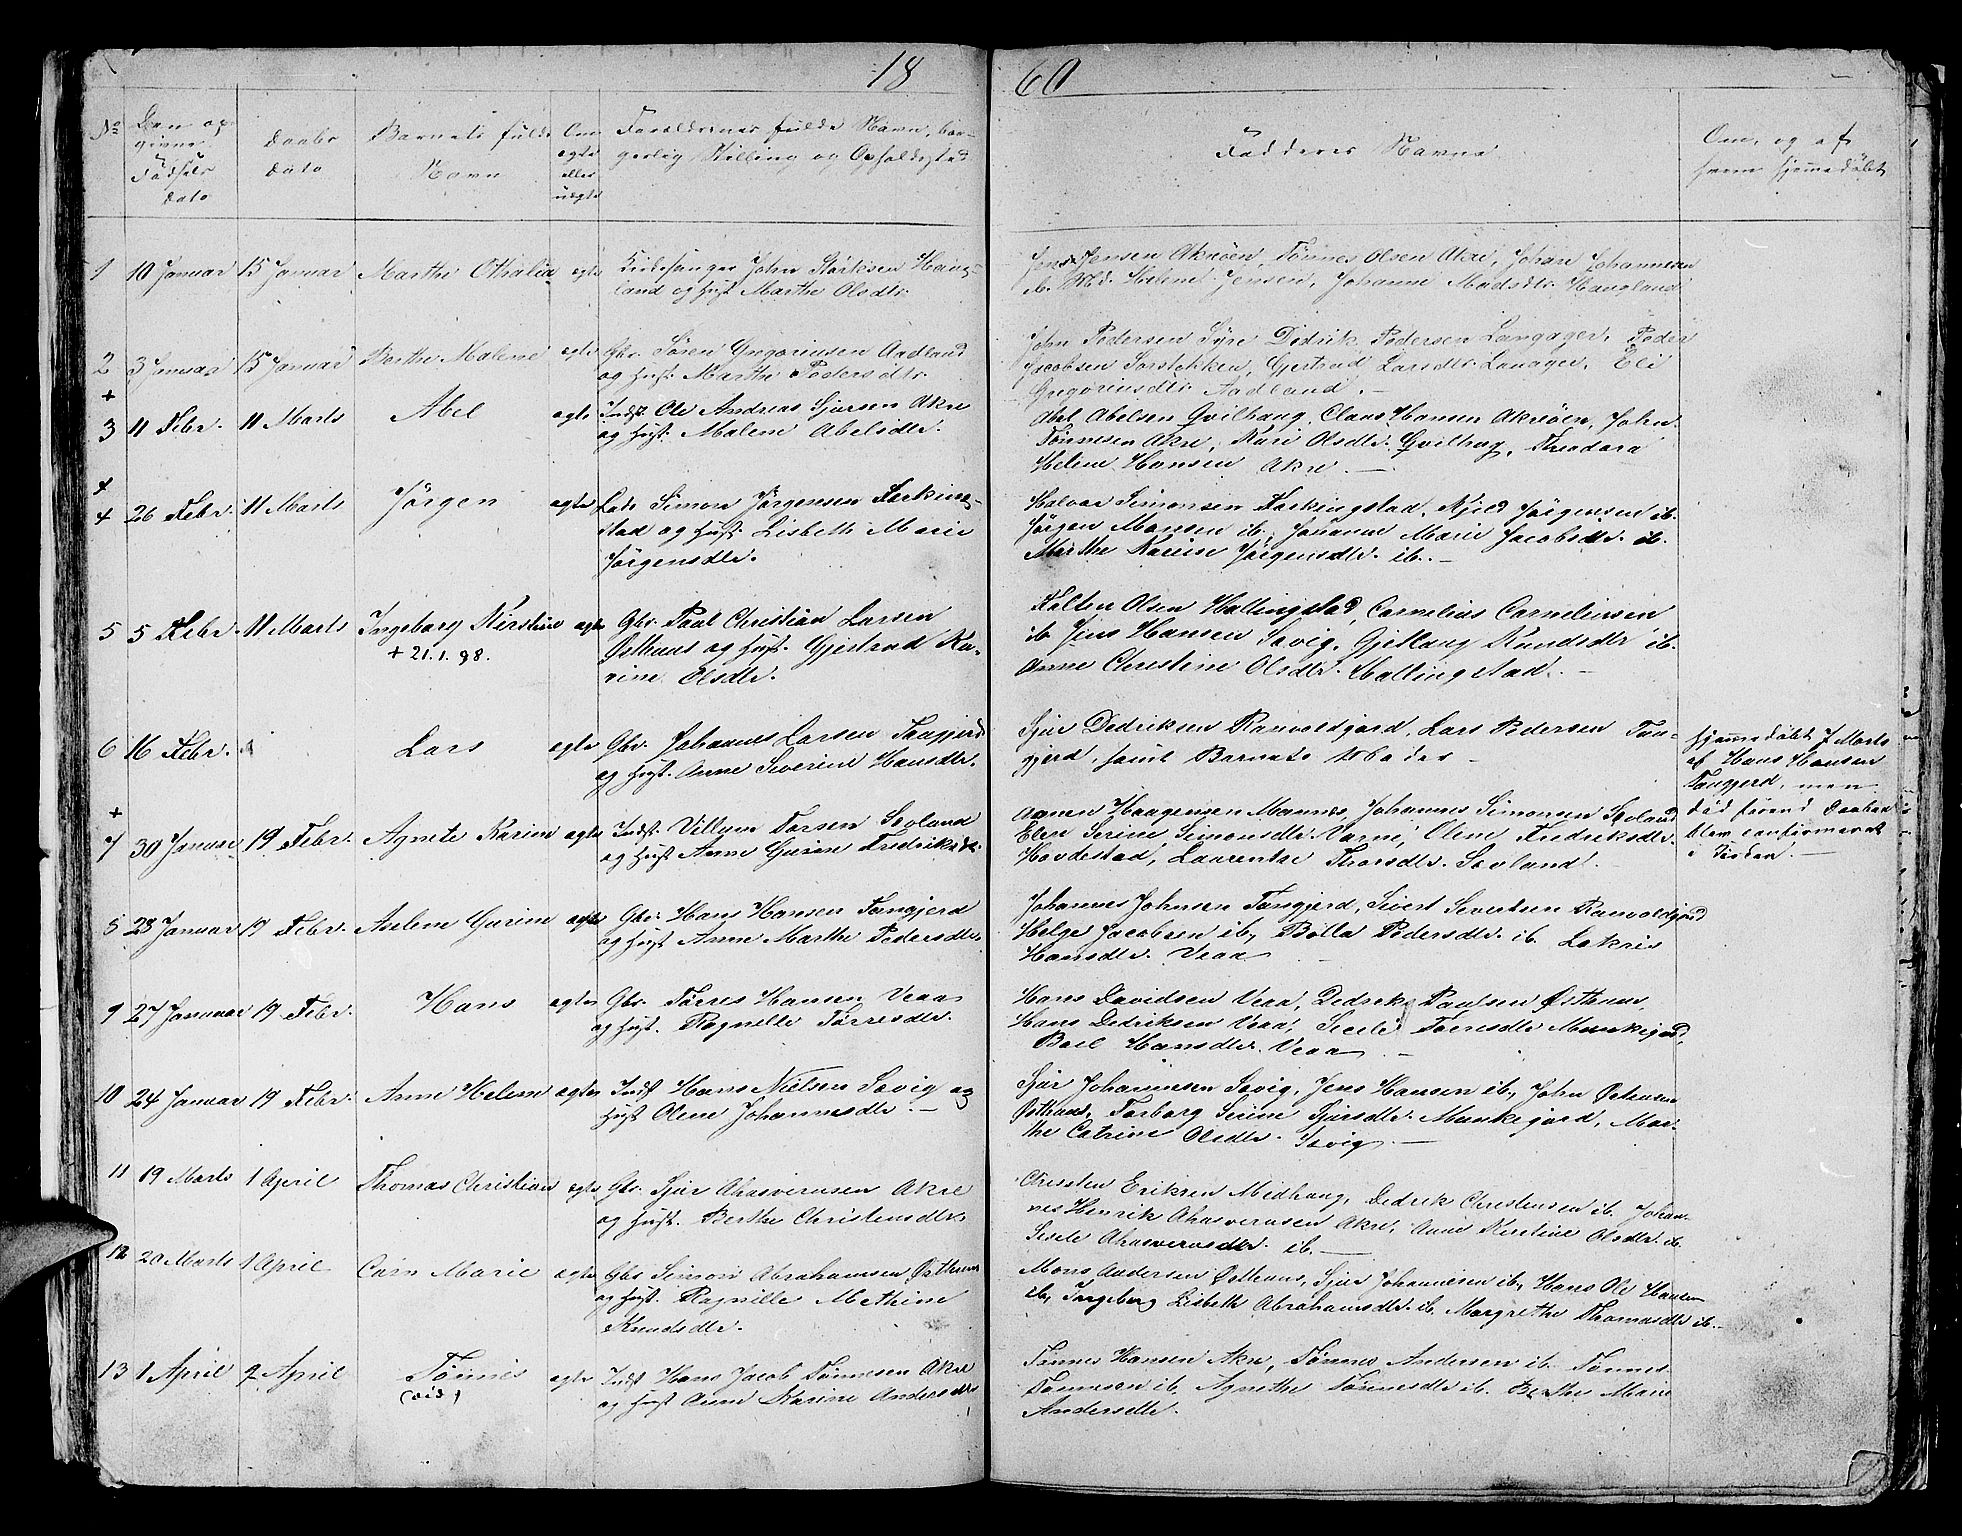 18 60
No Den op- Daabs Barnets fulde Om Forældrenes fulde Navn, bor- Faddernes Navne Om, og af
givne dato Navn ægte gerlig Stilling og Opholdssted hvem hjemmedøbt
Fødsels eller
dato uægte
1 10 Januar 15 Januar Marthe Othalia ægte Kirkesanger John Størksen Haug-
land og Hust Marthe Olsdtr.
Jens Jensen Akrøen, Tønnes Olsen Akre, Johan Johannesen
ib. Md. Helene Jensen, Johanne Madsdtr. Haugland
2 3 Januar 15 Januar Berthe Malene ægte Gbr. Søren Gregoriussen Aadland
og Hust. Marthe Pedersdtr.
John Pedersen Syre Didrik Pedersen Langager, Peder
Jacobsen Gjertrud Larsdtr. Eli
Gregoriusdtr. Aadland.
+
3 11 Febr. 11 Marts Abel ægte Indst. Ole Andreas Sjursen Akre
og Hust. Malene Abelsdtr.
Abel Abelsen Qvilhaug, Claus Hansen Akrøen, John
Tønnesen Akre, Kari Olsdtr. Qvilhaug, Theodora
Helene Hansen Akre.
+
4 26 Febr. 11 Marts Jörgen ægte Lods Simon Jörgensen Ferkings-
stad og Hust. Lisbeth Marie
Jörgensdtr.
Halvor Simonsen Ferkingstad, Kjeld Jörgensen ib.
Jörgen Monsen ib, Johanne Marie Jacobsdtr. ib.
Marthe Karine Jörgensdtr. ib.
5 5 Febr. 11 Marts Ingeborg Kirstine ægte Gbr. Paul Christian Larsen
+ 21.1.98. Østhuus og Hust. Gjertrud Ka-
rine Olsdtr.
Falten Olsen Hallingstad, Cornelius Corneliussen
ib. Jens Hansen Sævig, Gjellaug Knudsdtr ib.
Anne Christine Olsdtr. Hallingstad.
6 16 Febr. Lars ægte Gbr. Johannes Larsen Tangjerd
og Hust. Anne Severine Hansdtr.
Sjur Dedriksen Ranvoldgjerd, Lars Pedersen Tan-
gjerd, samt Barnets Moder
hjemmedøbt 7 Marts
af Hans Hansen
Tangjerd, men
död förend Daaben
blev confirmeret
i Kirken.
+
7 30 Januar 19 Febr. Agnete Karine ægte Indst. Villum Torsen Sevland
og Hust Anne Gurine Fredriksdtr.
Haagensen Mannes, Johannes Simonsen Sevland
Elen Serine Simonsdtr. Varne, Olene Fredriksdtr.
Hovdestad, Laurentze Thorsdtr. Sevland.
8 28 Januar 19 Febr. Aselene Gurine ægte Gbr. Hans Hansen Tangjerd
og Hust Anne Marthe Pedersdtr.
Johannes Johnsen Tangjerd, Sivert Severtsen Ranvoldgjerd
Helge Jacobsen ib, Bolla Pedersdtr. ib. Lakris
Hansdtr. Veaa
9 27 Januar 19 Febr. Hans ægte Gbr. Tørres Hansen Veaa
og Hust. Ragnille Tørresdtr.
Hans Davidsen Veaa, Dedrik Paulsen Østhuus,
Hans Dedriksen Veaa, Secele Tørresdtr Munkejord,
Boel Hansdtr. Veaa
10 24 Januar 19 Febr. Anne Helene ægte Indst Hans Nielsen Sævig og
Hust Olene Johannesdtr.
Sjur Johannesen Sævig, Jens Hansen ib, John Ostensen
Østhuus, Torborg Serine Sjursdtr. Munkejord, Mar-
the Catrine Olsdtr. Sævig
11 19 Marts 1 April Thomas Christian ægte Gbr. Sjur Ahasverusen Akre
og Hust. Berthe Christensdtr.
Christen Eriksen Medhaug, Dedrik Christensen ib. Johan-
nes Henrik Ahasverusen Akre, Anne Kirstine Olsdtr. ib.
Sesele Ahasverusdtr. ib.
12 20 Marts 1 April Marie ægte Gbr Simon Abrahamsen Østhuus
og Hust. Ragnille Mathine
Knudsdtr.
Mons Andersen Østhuus, Sjur Johannesen ib, Hans Ole Hansen
ib, Ingeborg Lisbeth Abrahamsdtr. ib. Margrethe Thomasdtr ib.
13 1 April 9 April Tönnes ægte Indst Hans Jacob Tönnesen Akre
og Hust Anne Karine Andersdtr
Tønnes Hansen Akre, Tönnes Andersen ib. Tönnes
Tønnesen ib. Agnethe Tönnesdtr ib. Berthe Marie
Andersdtr.